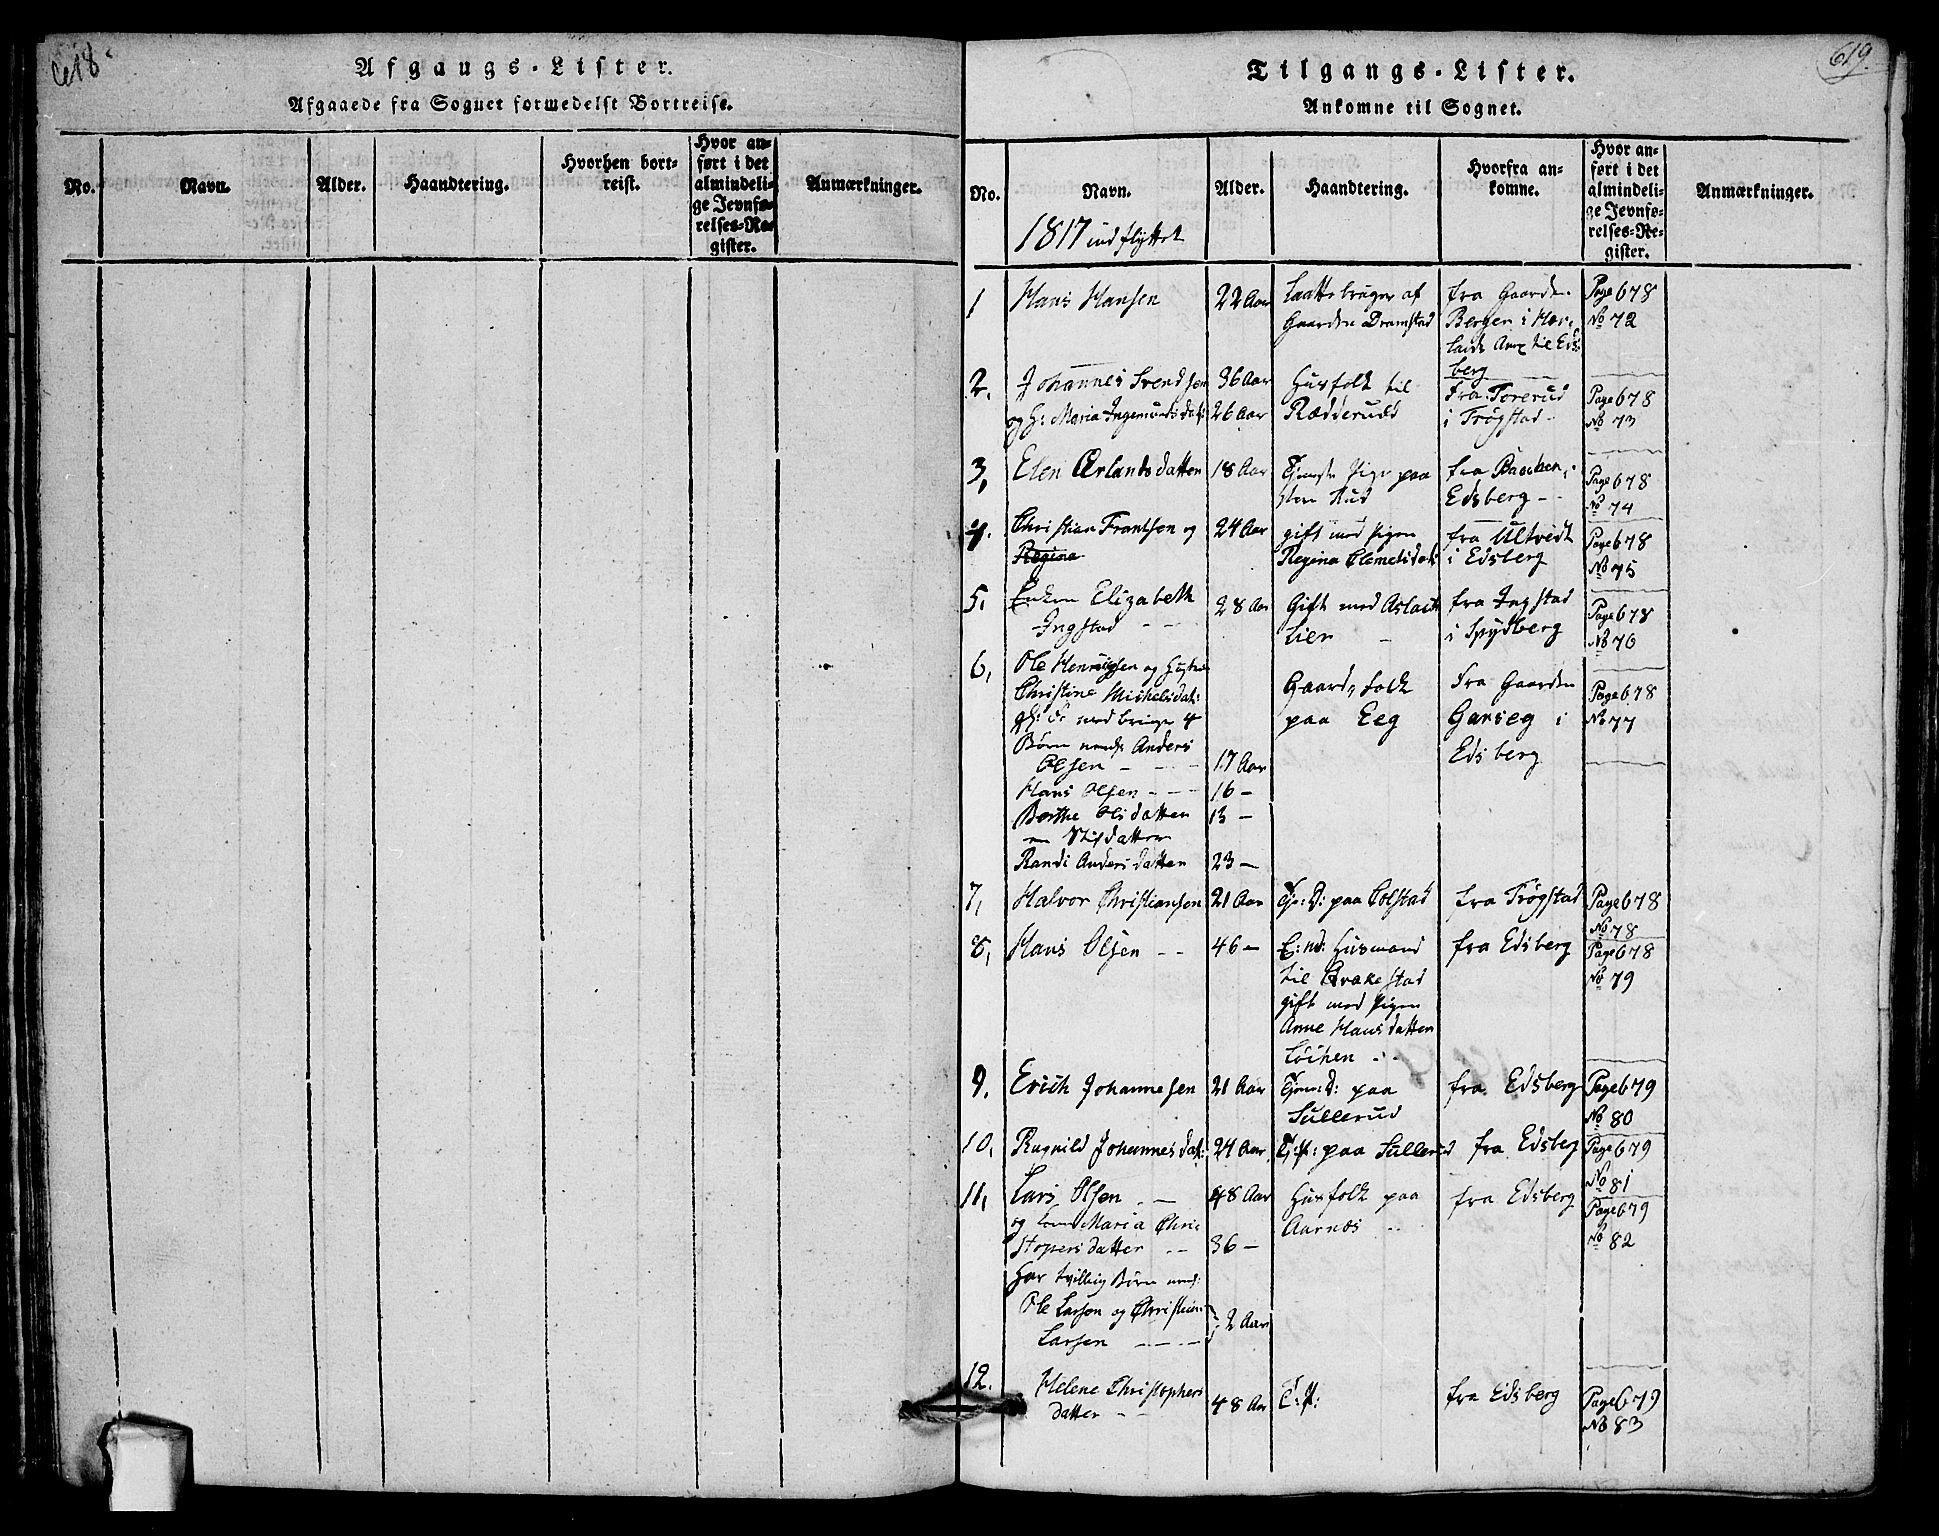 618
Afgangs-Lister.
Afgaaede fra Sognet formedelst Bortreise.
No.
Navn.
Alder.
Haandtering.
Hvorhen bort-
reist.
Hvor an-
ført i det
almindeli-
ge Jevnfø-
relses-Re-
gister.
Anmærkninger.
619.
Tilgangs-Lister.
Ankomne til Sognet.
No.
Navn.
1817 indflyttet
Alder.
Haandtering.
Hvorfra an-
komne.
Hvor an-
ført i det
almindeli-
ge Jevnfø-
relses-Re-
gister.
Anmærkninger.
1
Hans Hansen
22 Aar
bruger af
Gaarden Dramstad
fra Gaarden
Berger i Hær-
lands Anx til Eds-
berg
Page 678
No 72
2.
Johannes Svendsen
36 Aar
Husfolk til
fra Torerud
Page 678
og H: Maria Ingemundsdat:
26 Aar
Rædderuds
i Trøgstad
No 73
3,
Elen Erlandsdatter
18 Aar
Tjeneste Pige paa
fra
Edsberg
Page 678
No 74
4.
Christian Frantsen og
Regina
24 Aar
gift med Pigen
Regina Clemetsdat:
fra Ultvedt
i Edsberg
Page 678
No 75
5.
Enken Elizabeth
Ingstad
28 Aar
Gift med Aslack
Lier
fra Ingstad
i Spydberg
Page 678
No 76
6,
Ole Henrigsen og Hustrue
Christine Michelsdat:
med bringer 4
Børn Anders
Olsen
17 Aar
Gaard, folk
paa Eeg
fra Gaarden
Garseg i
Edsberg
Page 678
No 77
Hans Olsen
16 —
Berthe Olsdatter
13 —
Randi Andersdatter
23 —
7,
Halvor Christiansen
21 Aar
Tje: D: paa Colstad
fra Trøgstad
Page 678
No 78
8,
Hans Olsen
46 —
E: M: Husmand
til Brakestad
gift med Pigen
Anne Hansdatter
Löchen
fra Edsberg
Page 678
No 79
9.
Erich Johannesen
21 Aar
Tjene: D: paa
Sullerud
fra Edsberg
Page 679
No 80
10.
Ragnild Johannesdat:
24 Aar
T: P: paa Sullerud
fra Edsberg
Page 679
No 81
11,
Lars Olsen
48 Aar
Husfolk paa
Aarnæs
fra Edsberg
Page 679
No 82
og Maria Chri-
stopersdatter
36 —
har tvilling Børn
Ole Larsen og Christian
Larsen
2 Aar
12.
Helene Christophers
datter
48 Aar
T: P:
fra Edsberg
Page 679
No 83